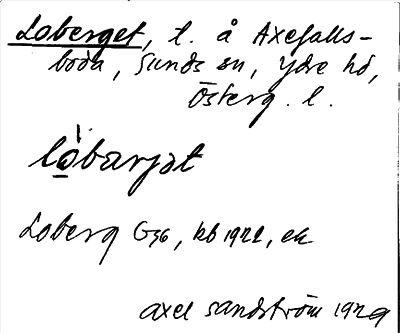 Loberget, t. å Axefalls-
boda, Sunds sn, Ydre hd,
Österg. l.
lo̱̍barjət
Loberg G36, kb 1922, ek
Axel Sandström 1929